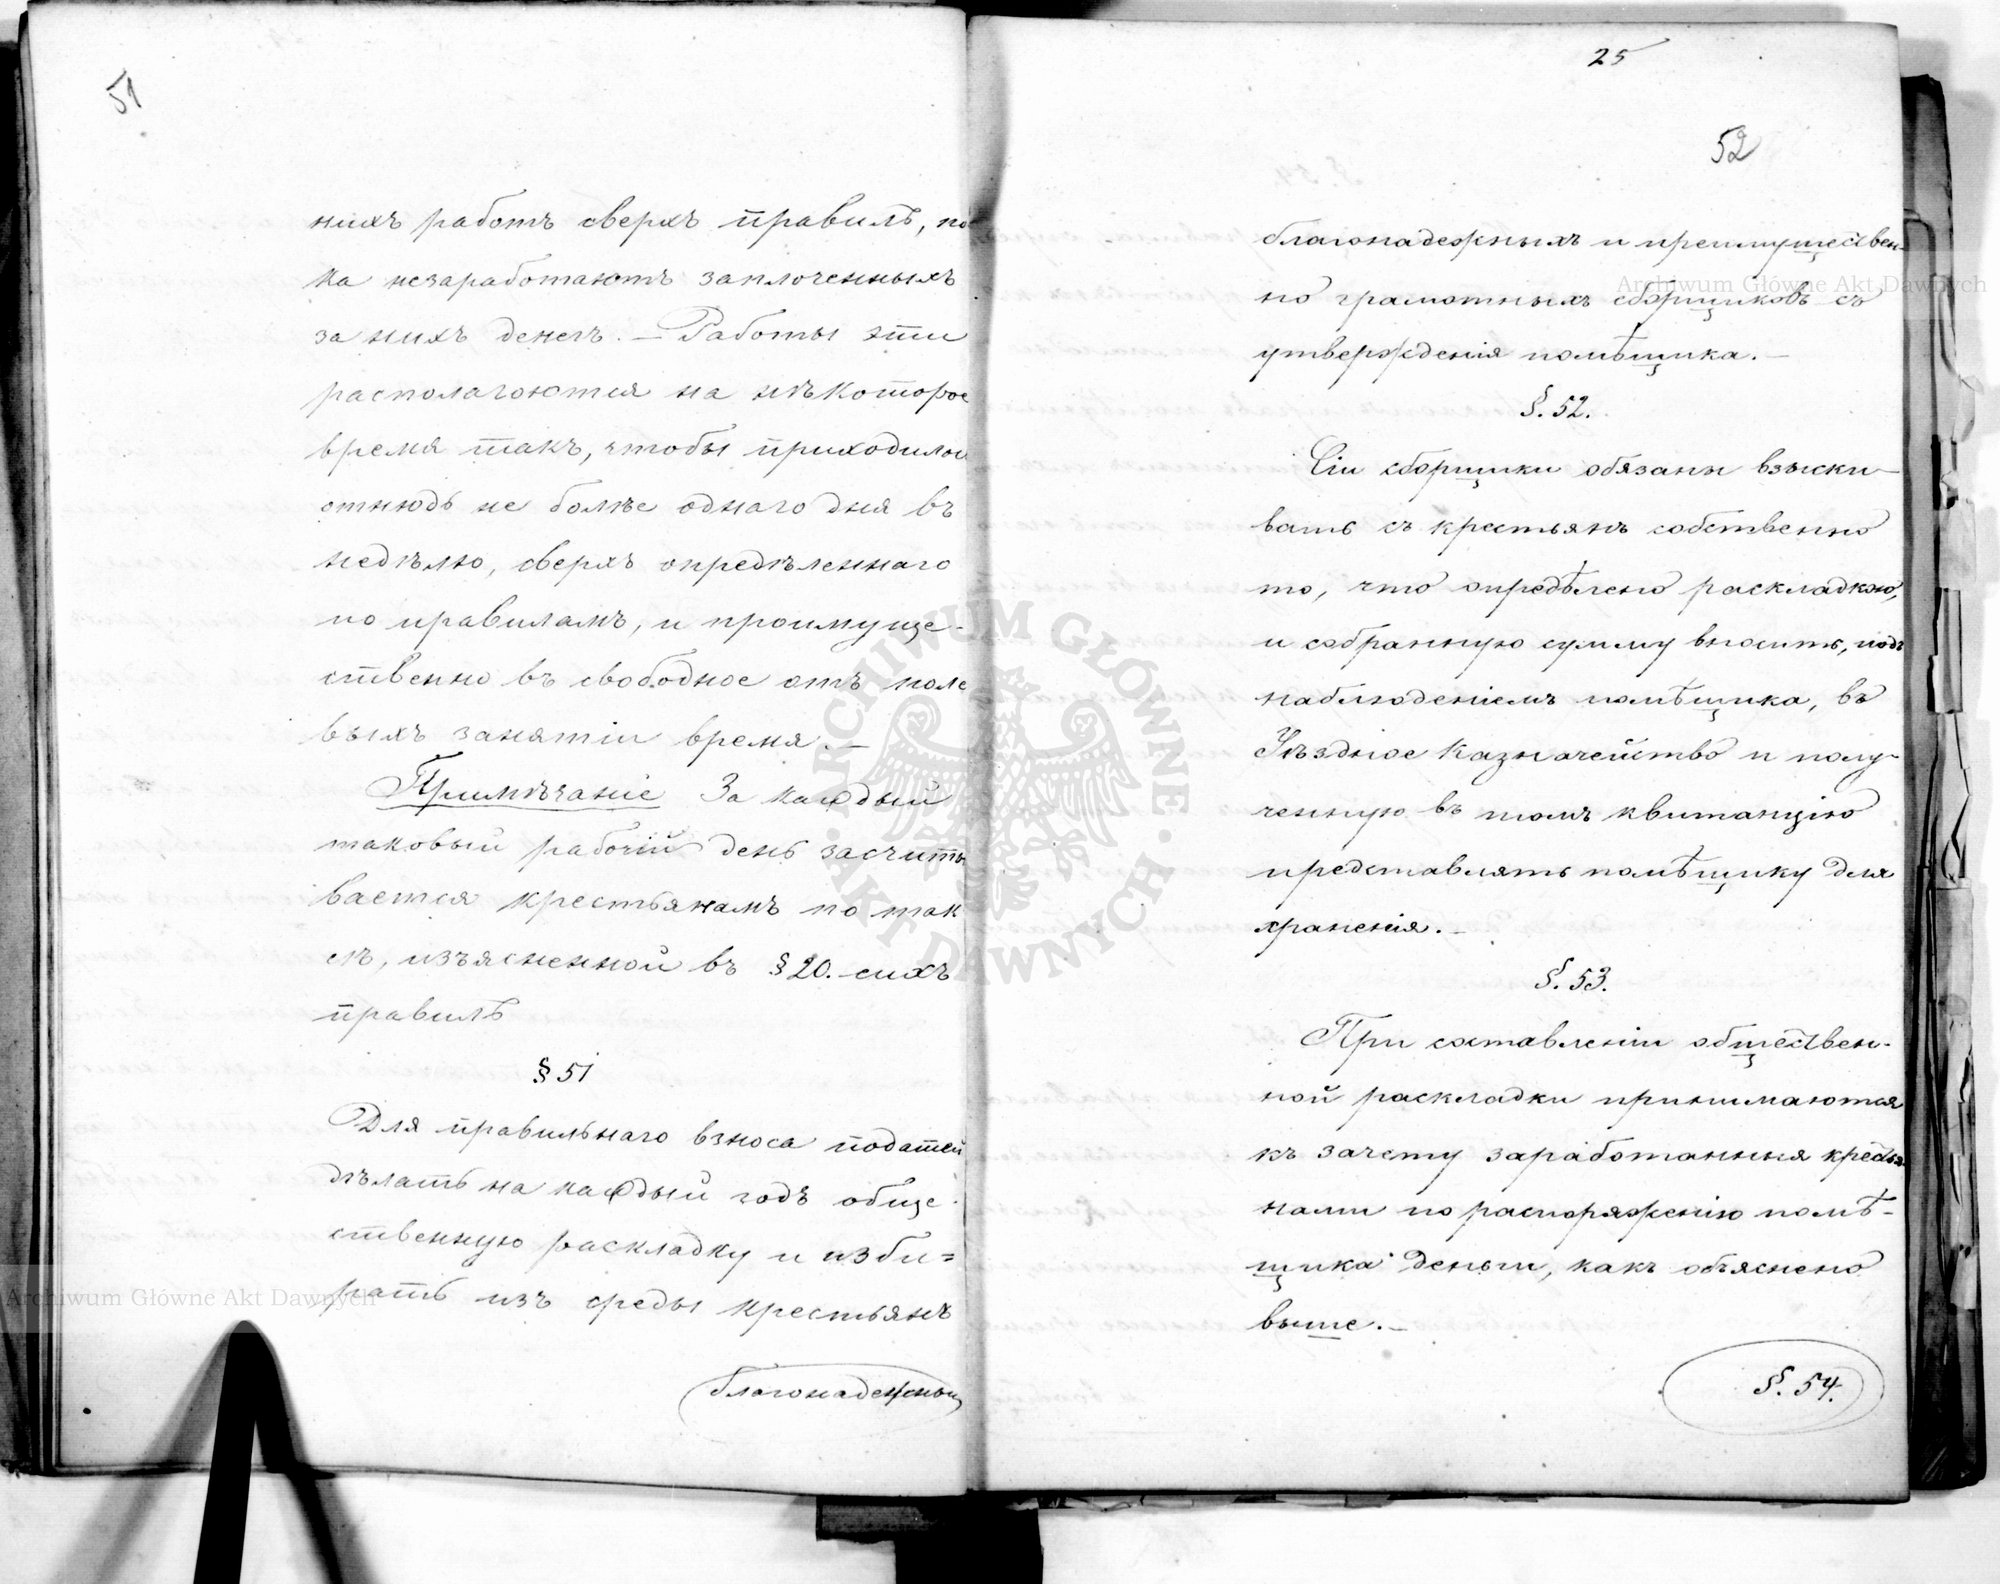 51
нихъ работъ сверхъ правилъ, по
ка незаработаютъ заплоченныхъ
за нихъ денегъ. — Работы эти
располагоются на нѣкоторое
время такъ, чтобы приходилос
отнюдь не болѣе однаго дня въ
недѣлю, сверхъ опредѣленнаго
по правиламъ, и проимуще-
ственно въ свободное отъ поле
выхъ занятіи время. —
Примѣчаніе За каждый
таковый рабочій день засчиты
вается крестьянамъ по так
сѣ, изъясненной въ § 20. сихъ
правилъ
§ 51
Для правильнаго взноса податей
дѣлать на каждый годъ обще
ственную раскладку и изби=
рать изъ среды крестьянъ
благонадежны
25
52
благонадежныхъ и преимуществен-
но грамотныхъ сборщиковъ съ
утвержденія помѣщика. —
§. 52.
Сіи сборщики обязаны взыски-
вать съ крестьянъ собственно
то, что опредѣлено раскладкою,
и собранную сумму вносить, подъ
наблюденіемъ помѣщика, въ
Уѣздное Казначейство и полу-
ченную въ томъ квитанцію
представлять помѣщику для
храненія. —
§. 53.
При составленіи обществен-
ной раскладки принимаются
къ зачету заработанныя крестья-
нами по распоряженію помѣ-
щика деньги, какъ объяснено
выше. —
§. 54.
Archiwum Główne Akt Dawnych
Archiwum Główne Akt Dawnych
ARCHIWUM GŁÓWNE · AKT DAWNYCH ·